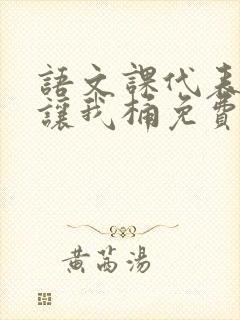 語文課代表
讓我桶免費
黃芮湯